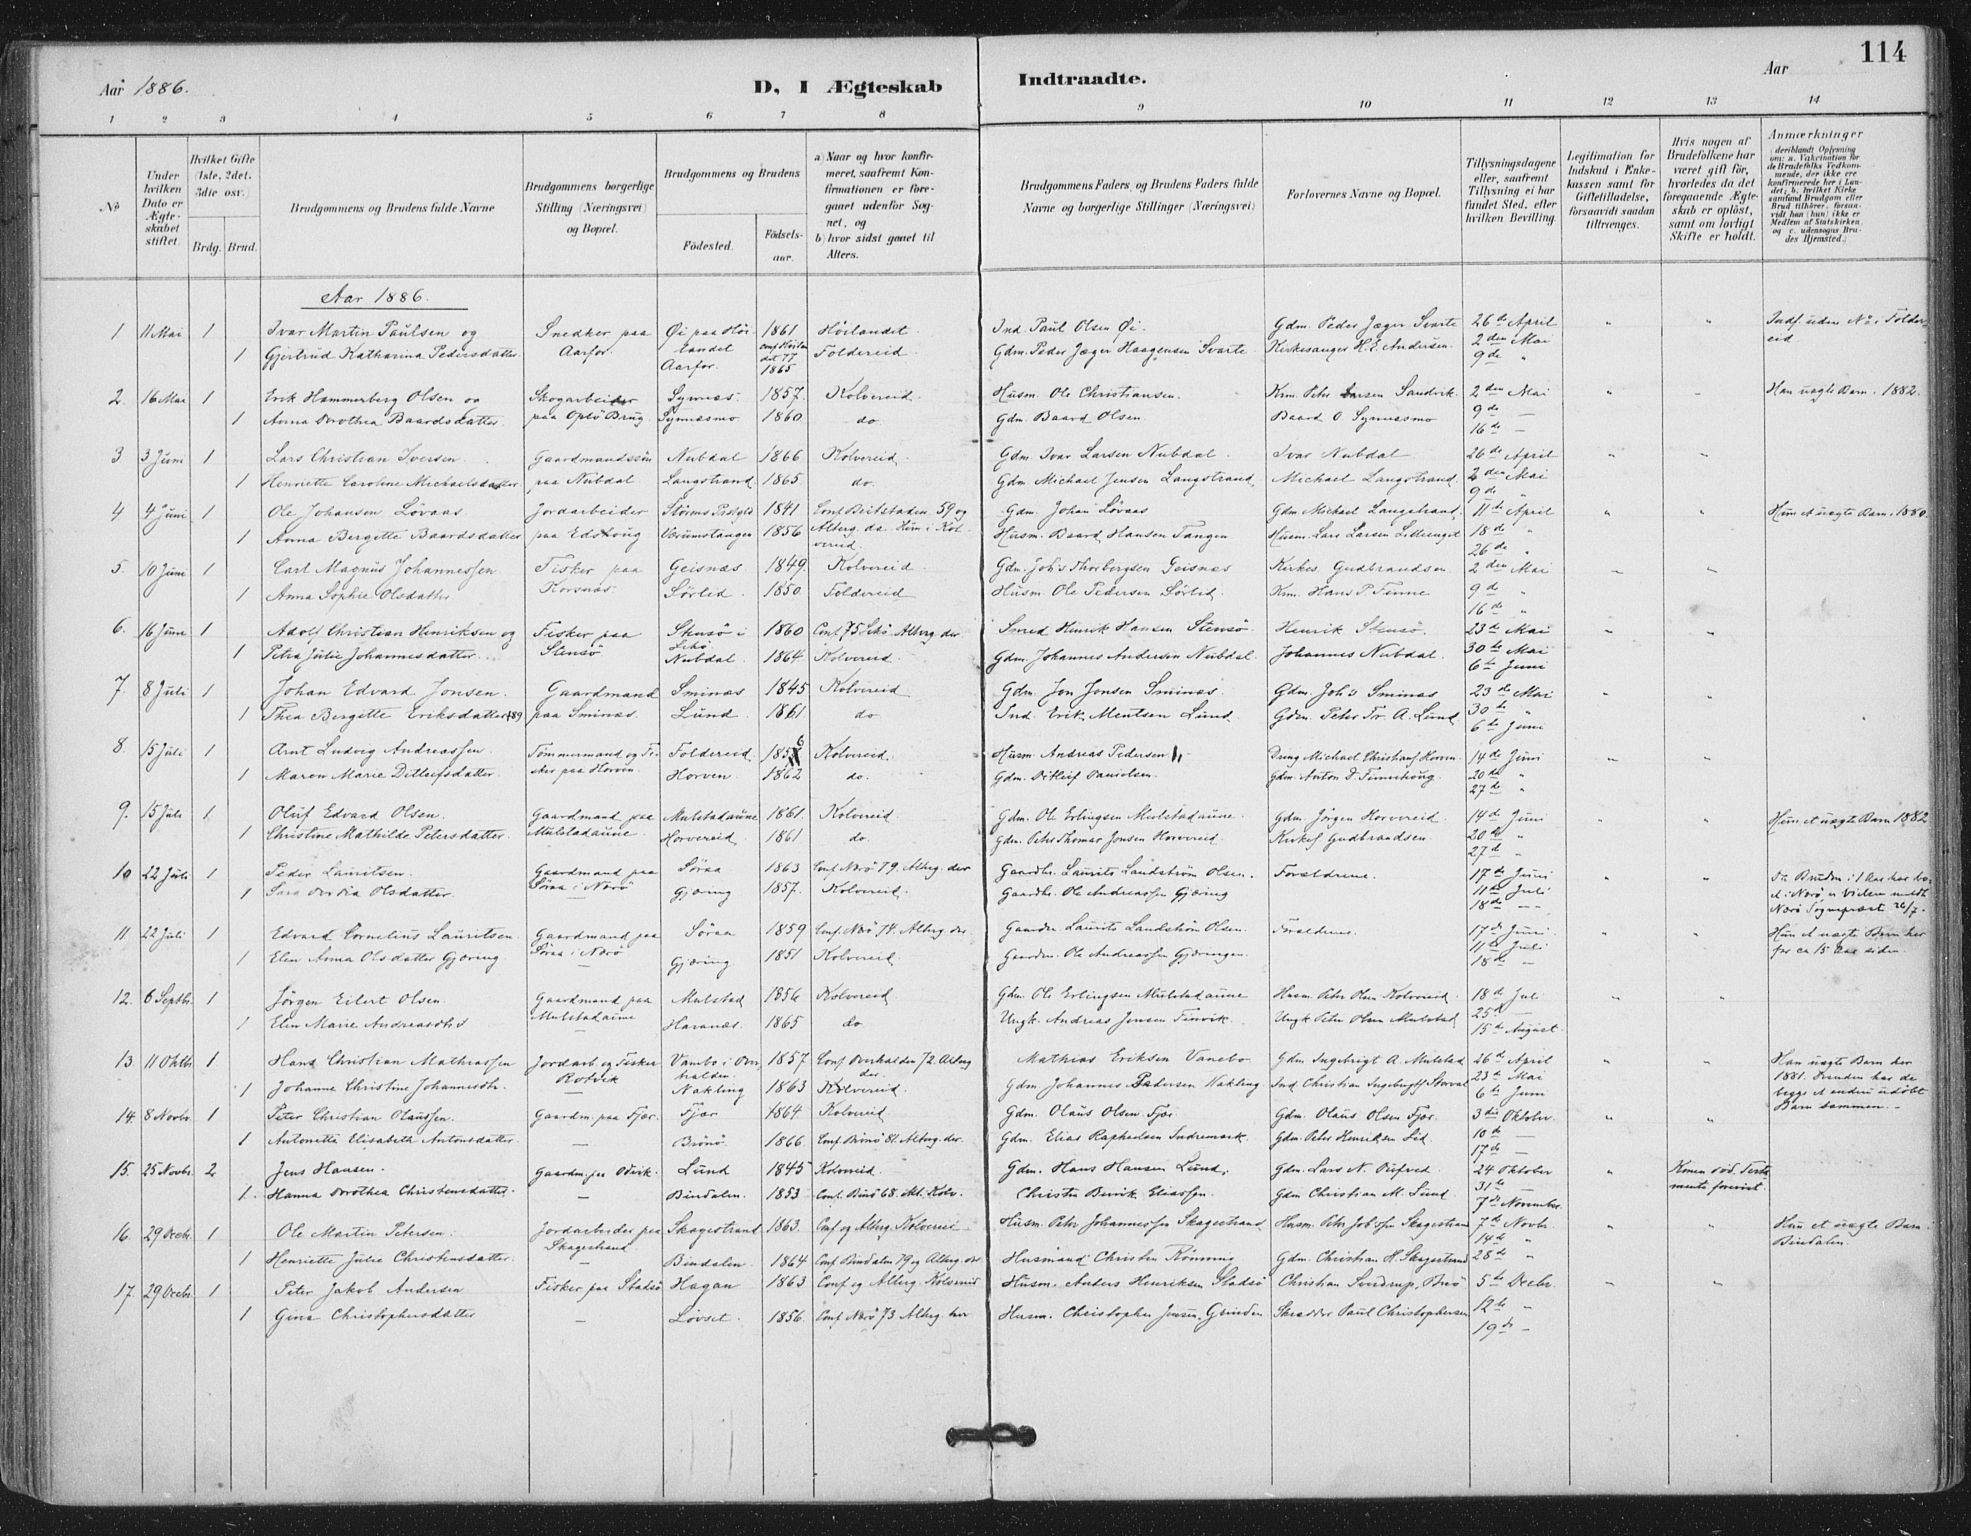 114
Aar 1886.
D, I Ægteskab Indtraadte.
Aar
1 2 3 4 5 6 7 8 9 10 11 12 13 14
No
Under hvilken Dato er Ægteskabet stiftet.
Hvilket Gifte (1ste, 2det, 3die osv.)
Brdg. Brud.
Brudgommens og Brudens fulde Navne
Brudgommens borgerlige Stilling (Næringsvei) og Bopæl.
Brudgommens og Brudens
Fødested.
Fødsels-aar.
a) Naar og hvor konfirmeret, saafremt Konfirmationen er foregaaet udenfor Sognet, og
b) hvor sidst gaaet til Alters.
Brudgommens Faders og Brudens Faders fulde Navne og borgerlige Stillinger (Næringsvei)
Forlovernes Navne og Bopæl.
Tillysningsdagene eller, saafremt Tillysning ei har fundet Sted, efter hvilken Bevilling.
Legitimation for Indskud i Enkekassen samt for Giftetilladelse, forsaavidt saadan tiltrænges.
Hvis nogen af Brudefolkene har været gift før, hvorledes da det foregaaende Ægteskab er opløst, samt om lovligt Skifte er holdt.
Anmærkninger (deriblandt Oplysning om: a. Vakcination for de Brudefolks Vedkommende, der ikke ere konfirmerede her i Landet; b. hvilket Kirkesamfund Brudgom eller Brud tilhører, forsaavidt han (hun) ikke er Medlem af Statskirken, og c. udensogns Brudes Hjemsted.)
Aar 1886.
1 11 Mai 1 Ivar Martin Paulsen og Snedker paa Øi paa Høi- 1861 Høilandet Ind. Paul Olsen Øi. Gdm. Peder Jæger Svarte 26de April Indf. uden No i Folder-
1 Gjertrud Katharina Pedersdatter Aarfor. landet Aarfor. 1865 Foldereid. Gdm. Peder Jæger Haagensen Svarte Kirkesanger H. E. Andersen. 2den Mai 9de " eid
2 16 Mai 1 Erik Hammerberg Olsen og Skogarbeider Symnæs 1857. Kolvereid. Husm. Ole Christiansen. Krm. Peter Larsen Sandvik. 2den Mai Han uægte Barn. 1882.
1 Anna Dorothea Baardsdatter. paa Oplø Brug Symnæsmo 1860 do Gdm. Baard Olsen. Baard O Symnæsmo 9de — 16de —
3 3 Juni 1 Lars Christian Iversen. Gaardmandssøn Nubdal 1866 Kolvereid. Gdm. Ivar Larsen Nubdal. Ivar Nubdal 26de April
1 Henriette Caroline Michaelsdatter. paa Nubdal Langstrand 1865. do. Gdm Michael Jensen Langstrand Michael Langstrand. 2den Mai 9de "
4 4 Juni 1 Ole Johansen Løvaas Jordarbeider 1841 Conf. Beitstaden 59 og Gdm. Johan Løvaas Gdm Michael Langstrand, 11te April Hun et uægte Barn. 1880.
1 Anna Bergette Baardsdatter paa Edshoug Verumstangen 1856 Altberg. da. Hun i Kolvereid Husm. Baard Hansen Tangen Husm. Lars Larsen Lilleenget 18de " 26de "
5. 10 Juni 1 Carl Magnus Johannessen Fisker paa Geisnæs. 1849. Kolvereid. Gdm. Johs Thorbergsen Geisnæs Kirkes. Gudbrandsen 2den Mai
1 Anna Sophie Olsdatter Korsnæs. Sørlid. 1850. Foldereid Husm. Ole Pedersen Sørlid. Krm. Hans P. Finne 9de " 16de "
6. 16 Juni 1 Adolf Christian Henriksen og Fisker paa Stensø i Lekø 1860 Conf. 75 Lekø. Altberg. der Smed Henrik Hansen Stensø. Henrik Stensø. 23de Mai
1 Petra Julie Johannesdatter. Stensø Nubdal. 1864 Kolvereid. Gdm. Johannes Andersen Nubdal. Johannes Nubdal. 30te Mai 6te Juni
7. 8 Juli 1 Johan Edvard Jonsen. Gaardmand Sminæs 1845 Kolvereid Gdm. Jon Jonsen Sminæs. Gdm. Johs Sminæs 23de Mai
1 Thea Bergette Eriksdatter paa Sminæs. Lund. 1861. do Ind. Erik Mentsen Lund. Gdm. Peter Fr. A. Lund 30te " 6te Juni
8. 15 Juli 1 Arnt Ludvig Andreassen. Tømmermand og Fi- Foldereid 1856 Kolvereid. Husm. Andreas Pedersen Dreng Michael Christians Horven. 14de Juni
1 Maren Marie Ditlefsdatter. sker paa Horven. Horven. 1862 do. Gdm. Ditlef Danielsen. Gdm. Anton D. Finnehoug. 20de " 27de "
9. 15 Juli 1 Oluf Edvard Olsen. Gaardmand paa Mulstadaune 1861. Kolvereid. Gdm. Ole Erlingsen Mulstadaune. Gdm. Jørgen Horvereid. 14de Juni Hun et uægte Barn 1882
1 Christine Mathilde Petersdatter. Mulstadaune. Horvereid. 1861 do. Gdm. Peter Thomas Jonsen Horvereid. Kirkes Gudbrandsen 20de " 27de "
10 22 Juli 1 Peder Lauritsen. Gaardmand paa Søraa 1863 Conf. Nærø 79. Altbrg. der Gaardbr. Laurits Landstrøm Olsen. Forældrene. 17de Juni
1 Sara Olsdatter. Søraa i Nærø Gjæring 1857. Kolvereid. Gaardbr. Ole Andreassen Gjæring 11te Juli 18de — Nærø Sognepræst 26/7.
11. 22 Juli 1 Edvard Cornelius Lauritsen. Gaardmand paa Søraa 1859 Conf. Nærø 74. Altbrg. der. Laurits Landstrøm Olsen. Forældrene. 17de Juni Hun et uægte Barn her
1 Elen Anna Olsdatter Gjæring. Søraa i Nærø Gjæring 1851 Kolvereid. Ole Andreassen Gjæringen. 11te Juli 18de — for ca 15 Aar siden
12. 6 Septbr. 1 Jørgen Eilert Olsen. Gaardmand paa Mulstad 1856 Kolvereid. Gdm. Ole Erlingsen Mulstadaune Husm. Peter Olsen Kolvereid. 18de Juli
1 Elen Marie Andreasdtr. Mulstadaune Havnæs. 1865 do Ungk. Andreas Jensen Finvik. Ungk Peter Olsen Mulstad 25de — 15de August
13. 11 Oktbr. 1 Hans Christian Mathiassen Jordarb. og Fisker Vanebo i Over- 1857 Conf. Overhalden 72. Altbrg der. Mathias Eriksen Vanebo Gdm. Ingebrigt A. Mulstad 26de April Han uægte Barn her
1 Johanne Christine Johannesdtr. Rotvik halden. Nakling 1863 Kolvereid. Gdm Johannes Pedersen Nakling Ind. Christian 23de Mai 6te Juni 1881. har de begge et andet udøbt Barn sammen. —
14. 8 Novbr. 1 Peter Christian Olaussen. Gaardm. paa Fjær. Fjær 1864 Kolvereid. Gdm. Olaus Olsen Fjær Gdm. Olaus Olsen Fjær. 3die Oktober.
1 Antonette Elisabeth Antonsdatter. — Brønø. 1866 Conf. Brønø 81. Altbrg. der. Gdm. Elias Raphaelsen Indremark. Gdm. Peter Henriksen Lid. 10de — 17de —
15. 25 Novbr. 2 Jens Hansen. Gaardm. paa Odvik. Lund 1845 Kolvereid. Gdm. Hans Hansen Lund. Gdm. Lars N. 24 Oktober Konen død. Testa-
1. Hanna Dorothea Christensdatter. — Bindalen. 1853 Christen Eliassen. Gdm Christian M. Lund 31te — 7de November mente forevist.
16. 29 Decbr. 1 Ole Martin Petersen. Jordarbeider paa Skagestrand 1863. Conf og Altbrg. Kolvereid Husm. Peter Johannessen Skagestrand Husm. Peter Johssen Skagestrand 7de Novbr Hun et uægte Barn i
1 Henriette Julie Christensdatter. Skagestrand — Bindalen 1864 Conf Bindalen 79 og Altbrg der Husmand Christen Rønning Gdm. Christian H. Skagestrand 14de " 28de " Bindalen.
17. 29 Decbr. 1 Peter Jakob Andersen Fisker paa Stadsø Hagan 1863 Conf og Altbrg. Kolvereid Husm. Anders Henriksen Stadsø Christian Sverdrup, 5te Decbr.
1 Gina Christophersdatter — Løvset. 1856. Conf Nærø 73 Altbrg. her Husm. Christopher Jensen Grinden Skrædder Paul Christophersen 12te " 19de —